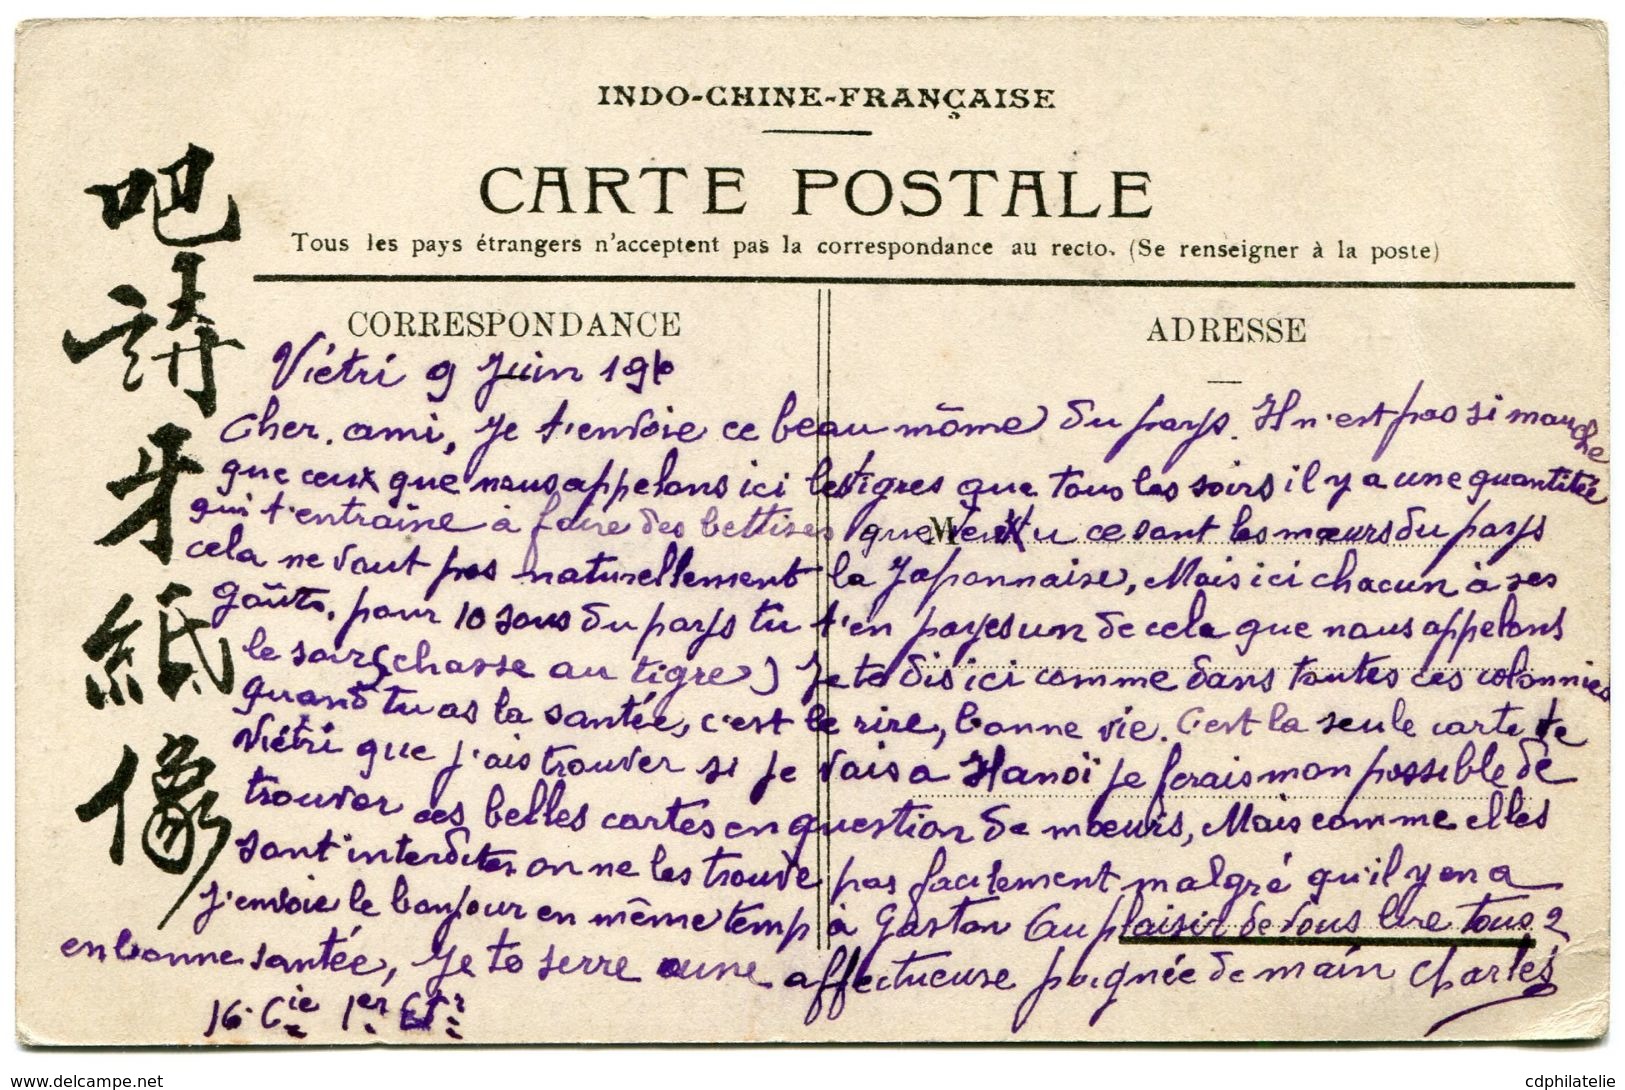 INDO-CHINE-FRANÇAISE
CARTE POSTALE
Tous les pays étrangers n'acceptent pas la correspondance au recto. (Se renseigner à la poste)
CORRESPONDANCE
ADRESSE
吧
請
牙
紙
像
Viétri 9 Juin 1910
Cher ami, Je t'envoie ce beau môme du pays. Il n'est pas si mauche
que ceux que nous appelons ici les tigres que tous les soirs il y a une quantitée
qui t'entraine à faire des bettises que veux tu ce sont les mœurs du pays
cela ne vaut pas naturellement la Japonnaise, Mais ici chacun à ses
goûts, pour 10 sous du pays tu t'en payes un de cela que nous appelons
le soir (chasse au tigre) Je te dis ici comme dans toutes ces colonnies
quand tu as la santée, c'est le rire, bonne vie. C'est la seule carte de
Viétri que j'ais trouver si je vais a Hanoï je ferais mon possible de
trouver ces belles cartes en question de mœurs, Mais comme elles
sont interdites on ne les trouve pas facilement malgré qu'il y en a
J'envoie le bonjour en même temp à Gaston Au plaisir de vous lire tous 2
en bonne santée, Je te serre une affectueuse poignée de main Charles
16. Cie 1er
M
cdphilatelie
www.delcampe.net